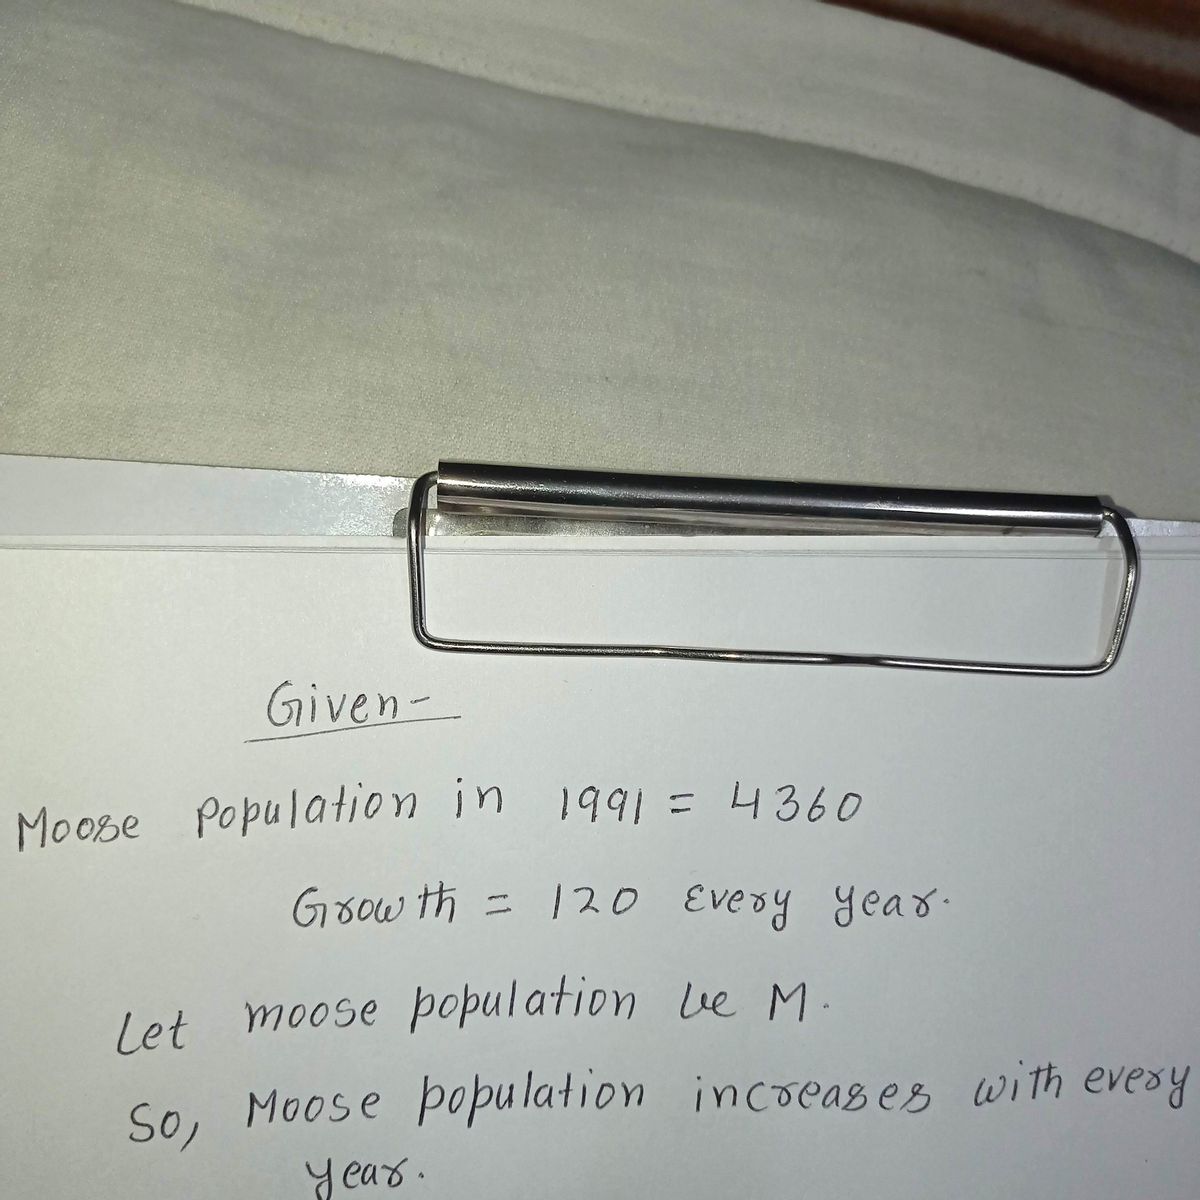 Given-
Moose population in 1991 = 4360
Growth = 120 every year.
Let moose population be M.
So, Moose population increases with every
year.